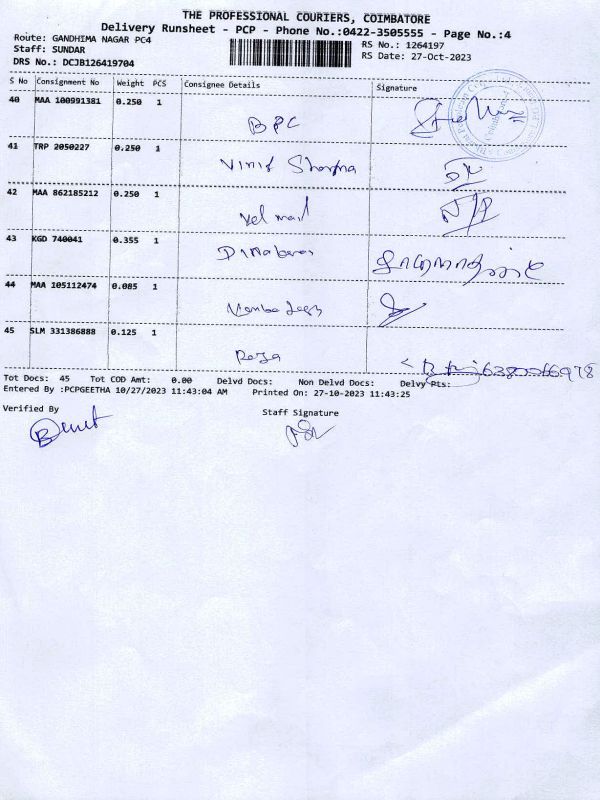 THE PROFESSIONAL COURIERS, COIMBATORE
Delivery Runsheet - PCP - Phone No.:0422-3505555 - Page No.:4
Route: GANDHIMA NAGAR PC4 RS No.: 1264197
Staff: SUNDAR RS Date: 27-Oct-2023
DRS No.: DCJB126419704
S No Consignment No Weight PCS Consignee Details Signature
40 MAA 100991381 0.250 1
BPC
41 TRP 2050227 0.250 1
Vinit Sharma
42 MAA 862185212 0.250 1
Vel mail
43 KGD 740041 0.355 1
44 MAA 105112474 0.085 1
45 SLM 331386888 0.125 1
Roja
Tot Docs: 45 Tot COD Amt: 0.00 Delvd Docs: Non Delvd Docs: Delvy Pts:
Entered By :PCPGEETHA 10/27/2023 11:43:04 AM Printed On: 27-10-2023 11:43:25
Verified By Staff Signature